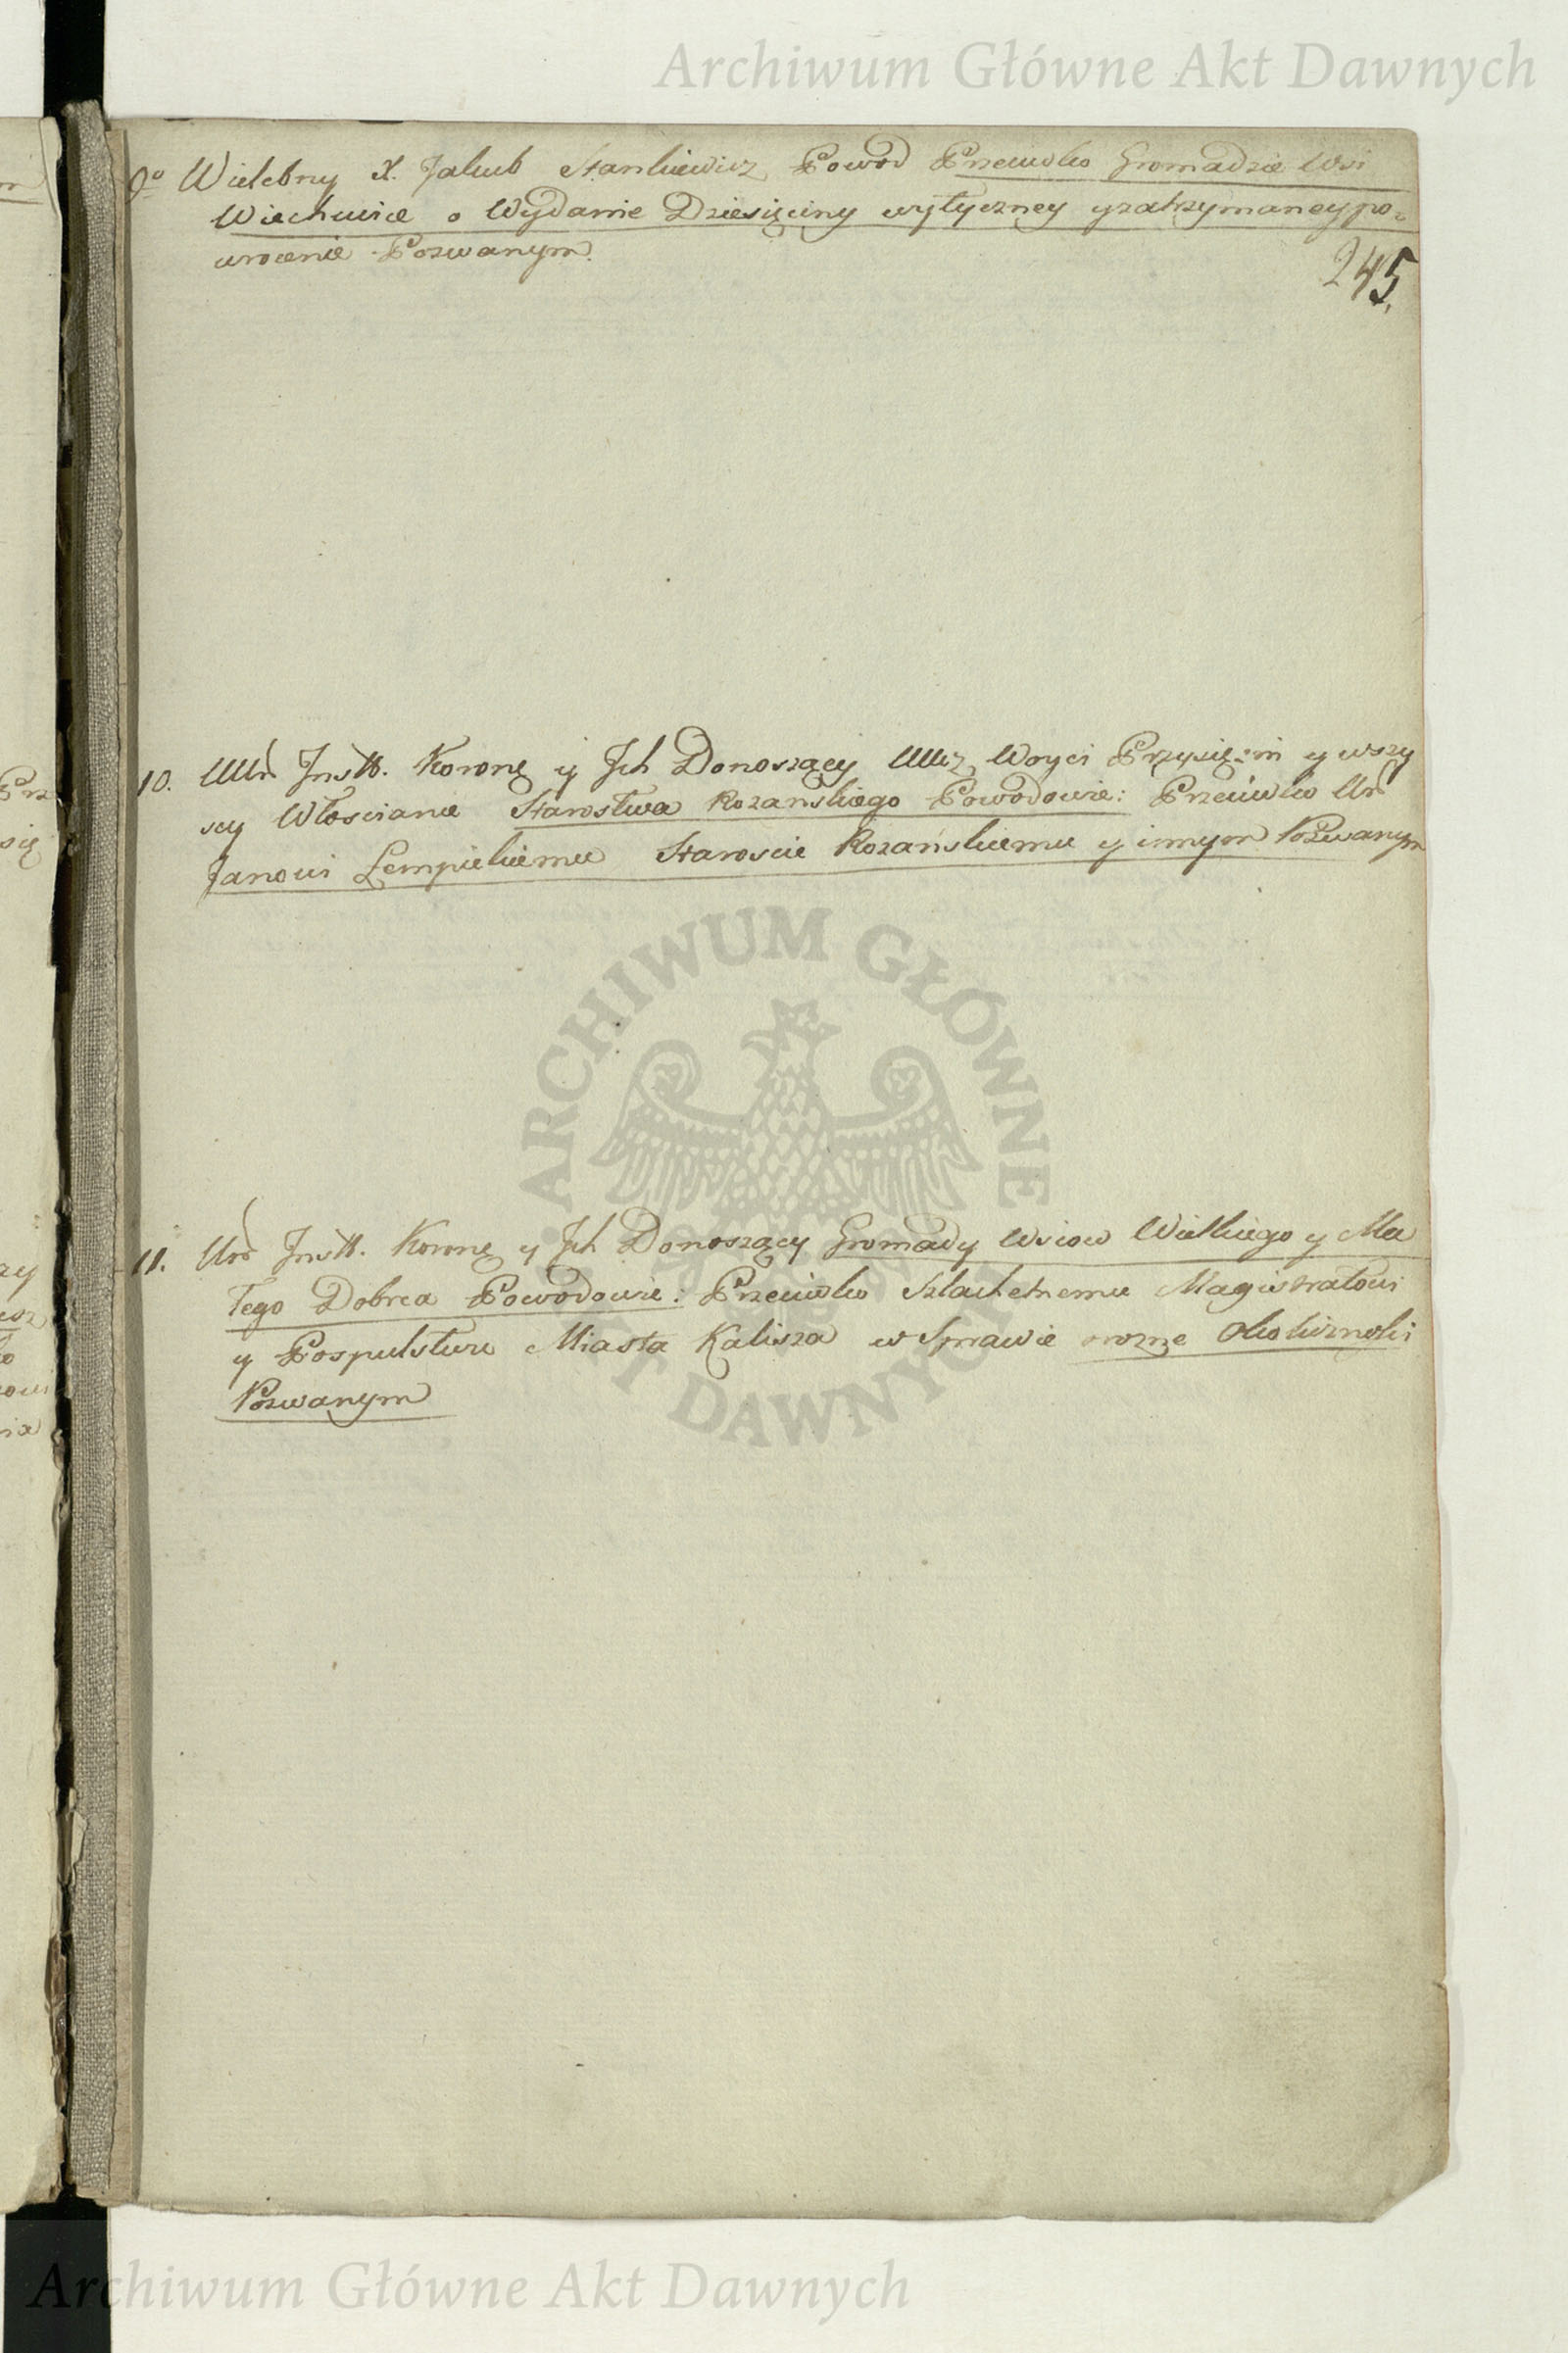 Archiwum Główne Akt Dawnych
9o Wielebny X. Jakub Stankiewicz Powod Przeciwko Gromadzie Wsi
Wiechucice o Wydanie Dziesięciny wytyczney y zatrzymaney po-
wrocenie Pozwanym.
245.
10. UUr Instt. Koronę y Ich Donoszący UUcz, Woyci Przysięźni y wszy
scy Włoscianie Starostwa Rozanskiego Powodowie: Przeciwko Ur
Janowi Lempickiemu Staroscie Rozańskiemu y innym Pozwanym
ARCHIWUM GŁÓWNE AKT DAWNYCH
11. Ur Instt. Koronę y Ich Donoszący Gromady Wsiow Wielkiego y Ma
łego Dobrca Powodowie: Przeciwko Szlachetnemu Magistratowi
y Pospulstwu Miasta Kalisza w Sprawie o rozne Okoliczności
Pozwanym
Archiwum Główne Akt Dawnych